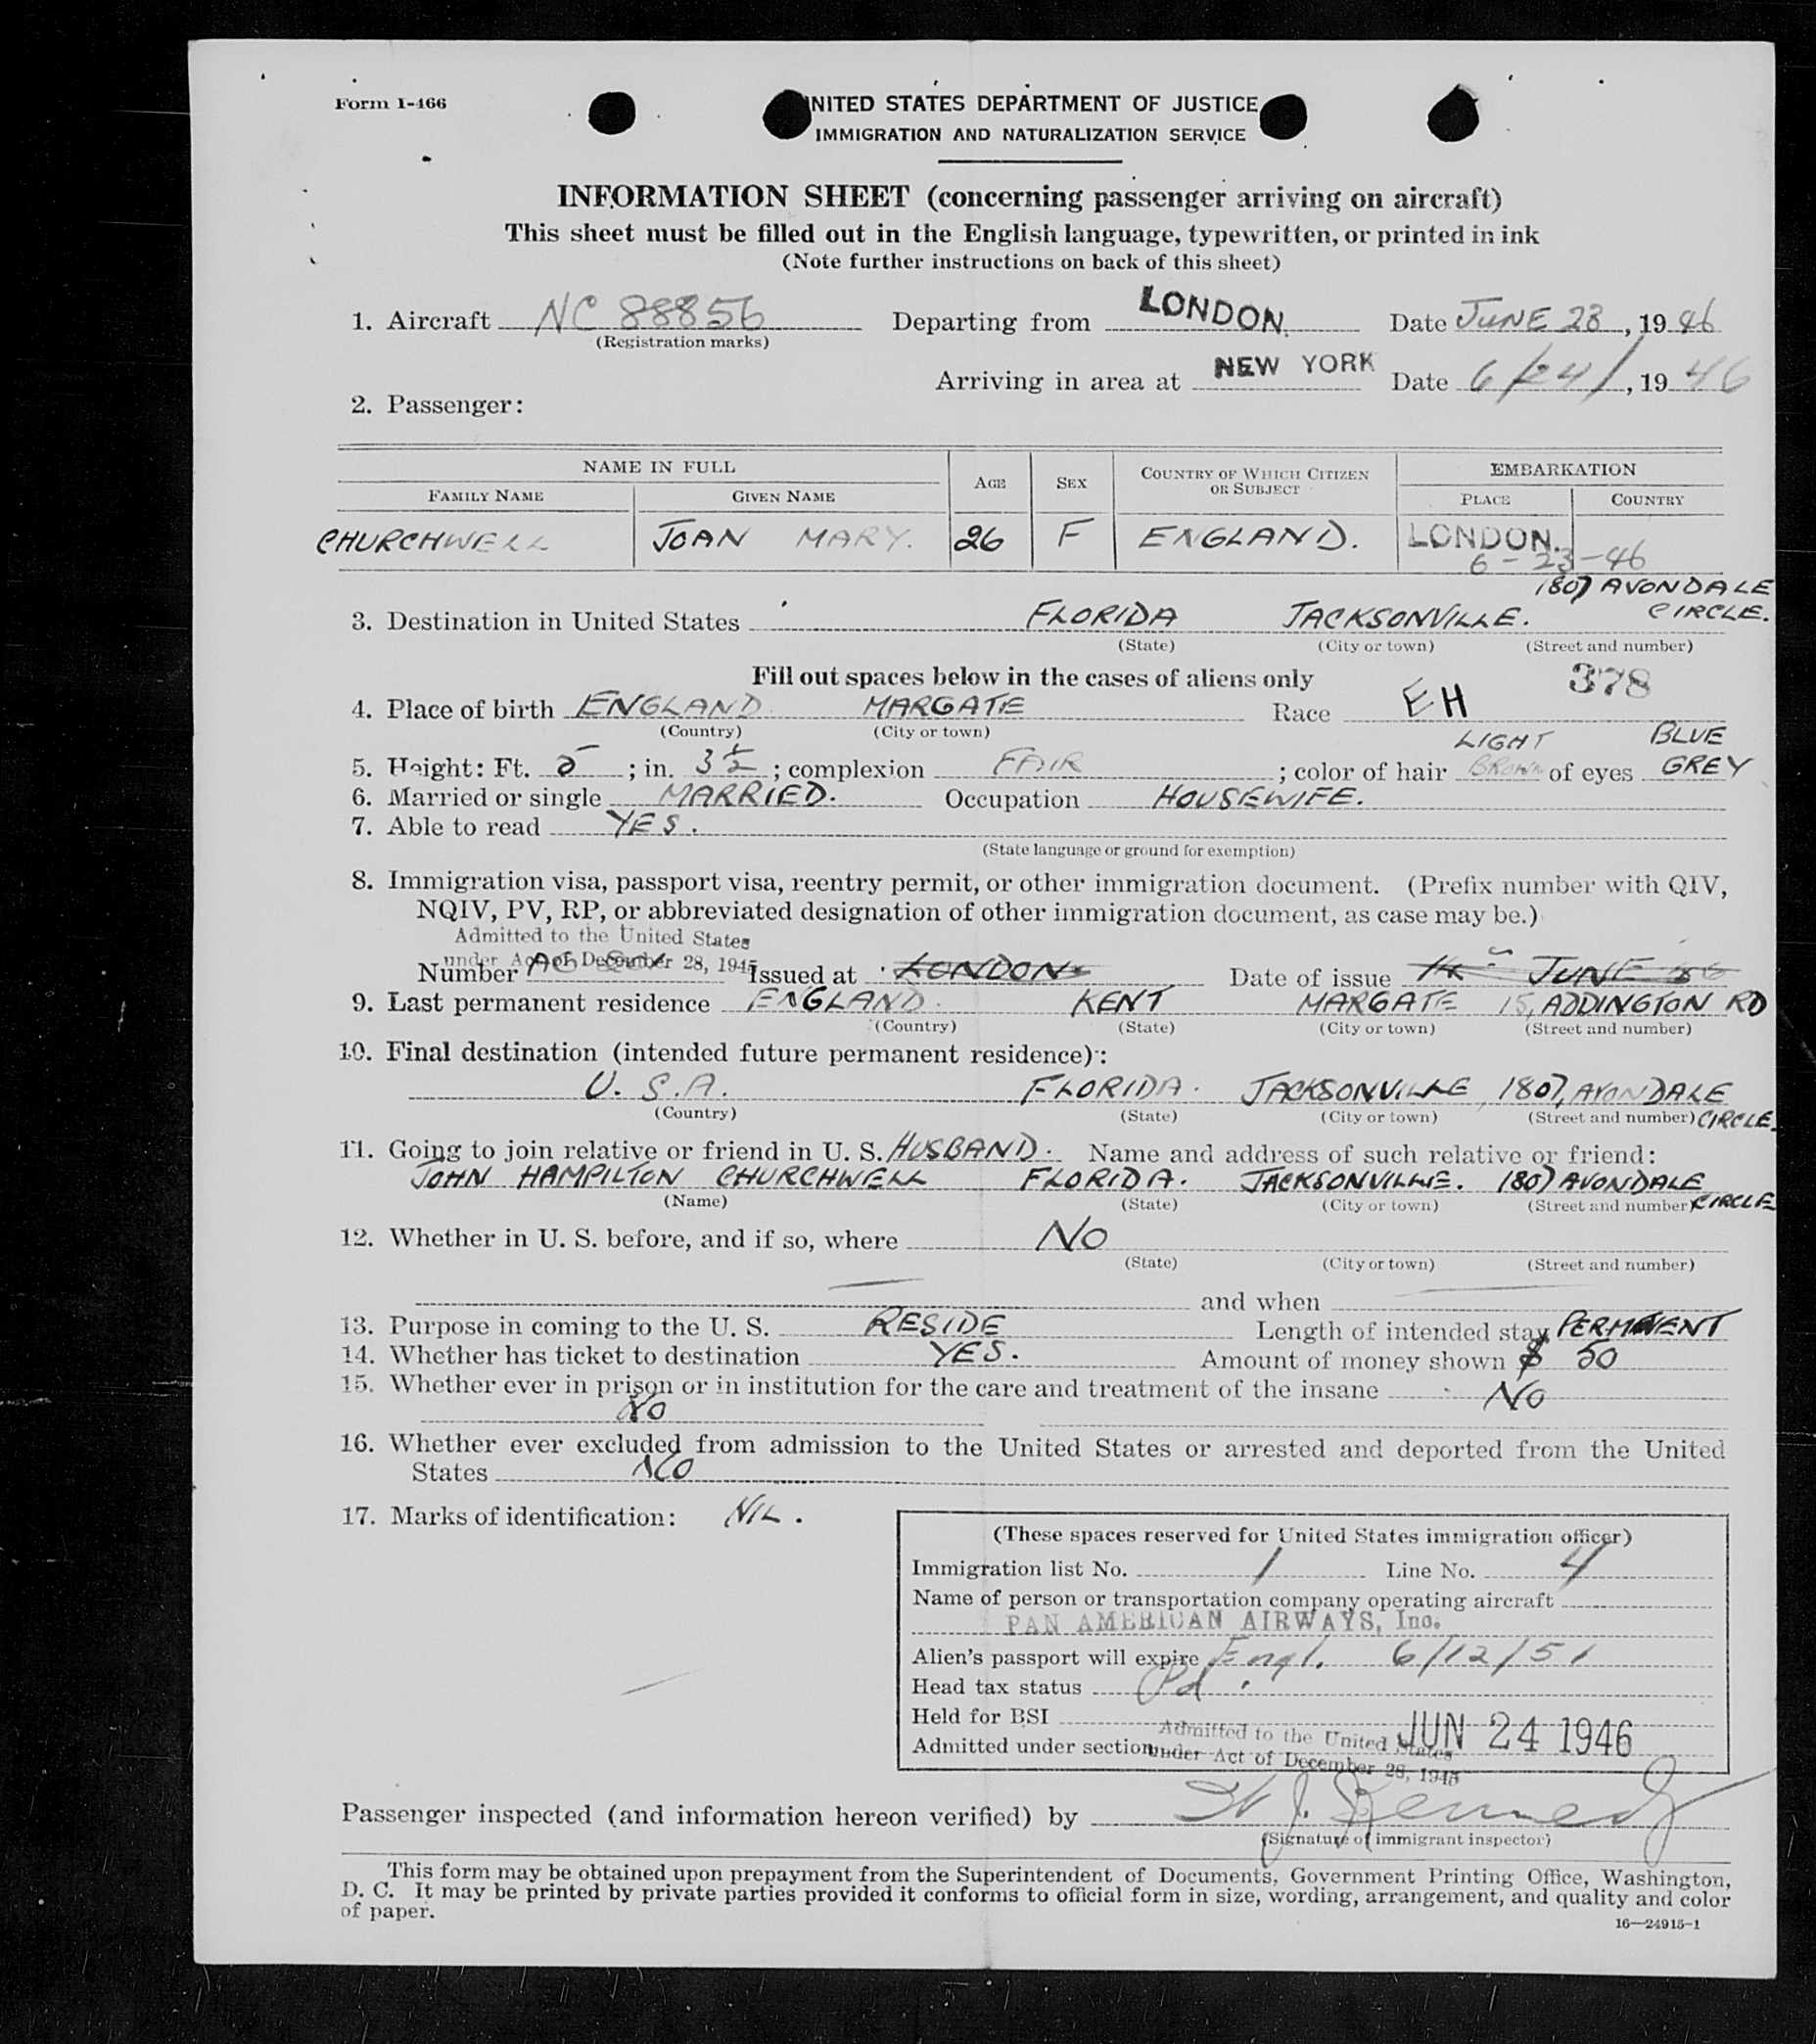 Form I-466
UNITED STATES DEPARTMENT OF JUSTICE
IMMIGRATION AND NATURALIZATION SERVICE
INFORMATION SHEET (concerning passenger arriving on aircraft)
This sheet must be filled out in the English language, typewritten, or printed in ink
(Note further instructions on back of this sheet)
1. Aircraft NC 88856 Departing from LONDON. Date JUNE 23, 1946
(Registration marks)
Arriving in area at NEW YORK Date 6/24/, 1946
2. Passenger:
NAME IN FULL AGE SEX COUNTRY OF WHICH CITIZEN OR SUBJECT EMBARKATION
FAMILY NAME GIVEN NAME PLACE COUNTRY
CHURCHWELL JOAN MARY. 26 F ENGLAND. LONDON.
6-23-46
1807 AVONDALE
3. Destination in United States FLORIDA JACKSONVILLE. CIRCLE.
(State) (City or town) (Street and number)
Fill out spaces below in the cases of aliens only 378
4. Place of birth ENGLAND MARGATE Race EH
(Country) (City or town)
LIGHT BLUE
5. Height: Ft. 5 ; in. 3½ ; complexion FAIR ; color of hair BROWN of eyes GREY
6. Married or single MARRIED. Occupation HOUSEWIFE.
7. Able to read YES.
(State language or ground for exemption)
8. Immigration visa, passport visa, reentry permit, or other immigration document. (Prefix number with QIV,
NQIV, PV, RP, or abbreviated designation of other immigration document, as case may be.)
Admitted to the United States
under Act of December 28, 1945
Number Issued at LONDON Date of issue JUNE
9. Last permanent residence ENGLAND. KENT MARGATE 15, ADDINGTON RD
(Country) (State) (City or town) (Street and number)
10. Final destination (intended future permanent residence):
U. S.A. FLORIDA. JACKSONVILLE, 1807, AVONDALE
(Country) (State) (City or town) (Street and number) CIRCLE.
11. Going to join relative or friend in U. S. HUSBAND. Name and address of such relative or friend:
JOHN HAMPILTON CHURCHWELL FLORIDA. JACKSONVILLE. 1807 AVONDALE
(Name) (State) (City or town) (Street and number) CIRCLE
12. Whether in U. S. before, and if so, where NO
(State) (City or town) (Street and number)
and when
13. Purpose in coming to the U. S. RESIDE Length of intended stay PERMANENT
14. Whether has ticket to destination YES. Amount of money shown $ 50
15. Whether ever in prison or in institution for the care and treatment of the insane NO
NO
16. Whether ever excluded from admission to the United States or arrested and deported from the United
States NO
17. Marks of identification: NIL.
(These spaces reserved for United States immigration officer)
Immigration list No. 1 Line No. 4
Name of person or transportation company operating aircraft
PAN AMERICAN AIRWAYS, Inc.
Alien's passport will expire Engl. 6/12/51
Head tax status Pd.
Held for BSI
Admitted to the United States JUN 24 1946
Admitted under section under Act of December 28, 1945
Passenger inspected (and information hereon verified) by J. Kennedy
(Signature of immigrant inspector)
This form may be obtained upon prepayment from the Superintendent of Documents, Government Printing Office, Washington,
D. C. It may be printed by private parties provided it conforms to official form in size, wording, arrangement, and quality and color
of paper.
16—24915-1